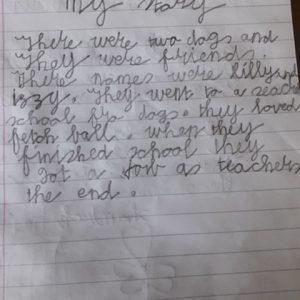 My story
There were two dogs and
They were friends.
There names were Lilly and
Izzy. They went to a
school fro dogs. they loved
fetch ball. when they
finished school they
got a Jow as teachers
the end.